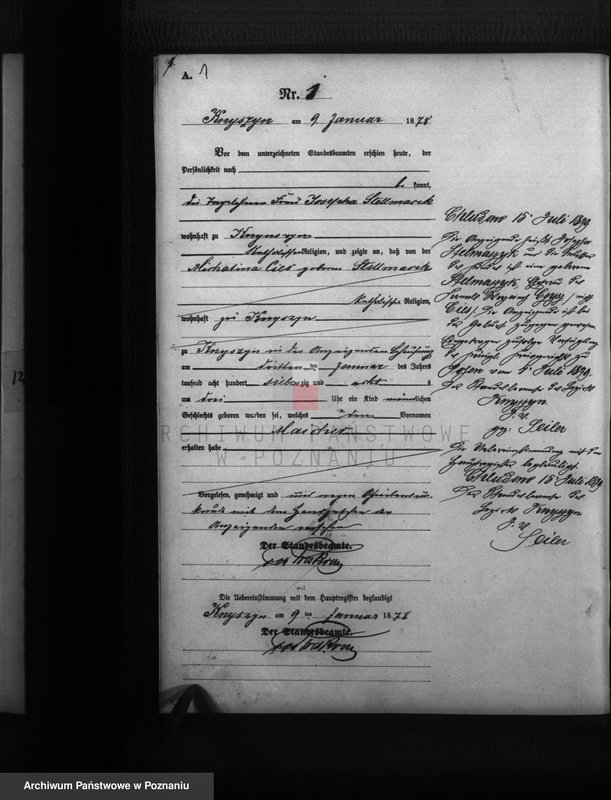 9.
A. 1
Nr. 1
Knyszyn am 9 Januar 1878
Vor dem unterzeichneten Standesbeamten erschien heute, der
Persönlichkeit nach
be kannt,
die Tagelöhner Frau Josepha Stellmaseck
wohnhaft zu Knyszyn
Katholischer Religion, und zeigte an, daß von der
Michalina Cies geborne Stellmaseck
Katholische Religion,
wohnhaft zu Knyszyn
zu Knyszyn in der Anzeigenden Behausung
am dritten ten Januar des Jahres
tausend acht hundert siebenzig und acht
um drei Uhr ein Kind männlichen
Geschlechts geboren worden sei, welches den Vornamen
erhalten habe
Vorgelesen, genehmigt und und wegen Schreibensun
kunde mit dem Handzeichen der
Anzeigenden versehen
Der Standesbeamte.
Die Uebereinstimmung mit dem Hauptregister beglaubigt
Knyszyn am 9 ten Januar 1878
Der Standesbeamte.
15 Juli 1879
Die Anzeigende heißt Josepha
Stelmaszyk und die Mutter
des Kindes ist eine geborene
Stelmaszyk, Ehefrau des
nicht
Cies. Die Anzeigende ist bei
der Geburt zugegen gewesen
Eingetragen zufolge Verfügung
des Königl. Kreisgerichts zu
vom 5 Juli 1879.
Der Standesbeamte des Bezirks
Knyszyn
J. V.
gez. Seiler
Die Uebereinstimmung mit dem
Hauptregister beglaubigt.
15 Juli 1879
Der Standesbeamte des
Bezirks Knyszyn
J. V.
Seiler
12
ARCHIWUM PAŃSTWOWE
W POZNANIU
Archiwum Państwowe w Poznaniu